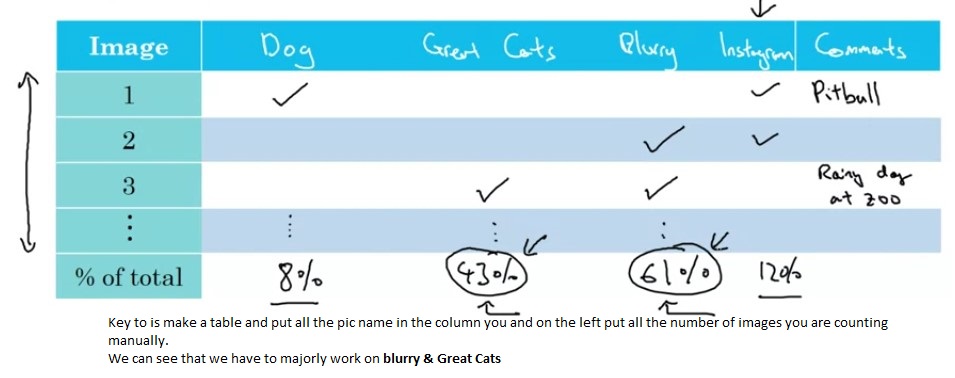 Image Dog Great Cats Blurry Instagram Comments
1 ✓ ✓ Pitbull
2 ✓ ✓
3 ✓ ✓ Rainy day
at zoo
⋮ ⋮ ⋮ ⋮
% of total 8% 43% 61% 12%
Key to is make a table and put all the pic name in the column you and on the left put all the number of images you are counting
manually.
We can see that we have to majorly work on blurry & Great Cats